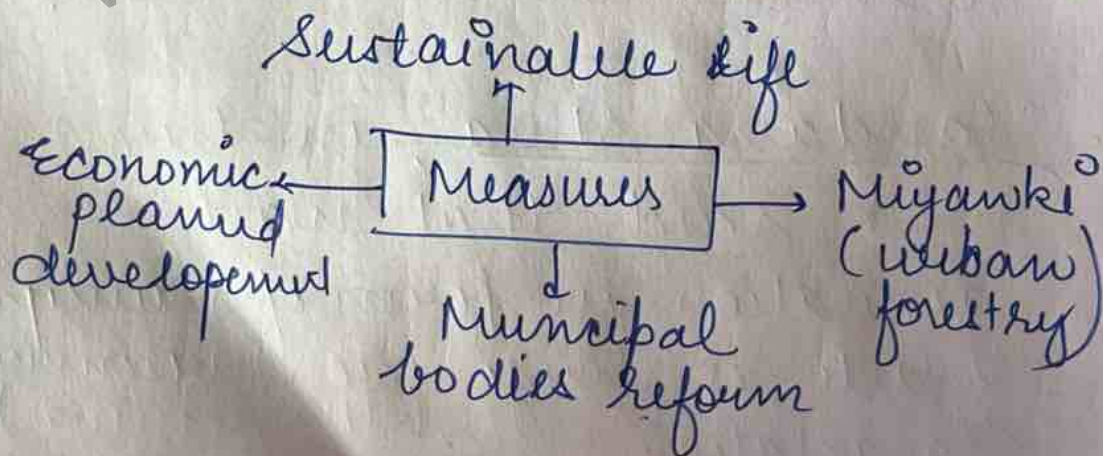 Sustainable life
Economic
planud
developemnt
Measures
Miyawki
(urban
forestry)
Muncipal
bodies reform